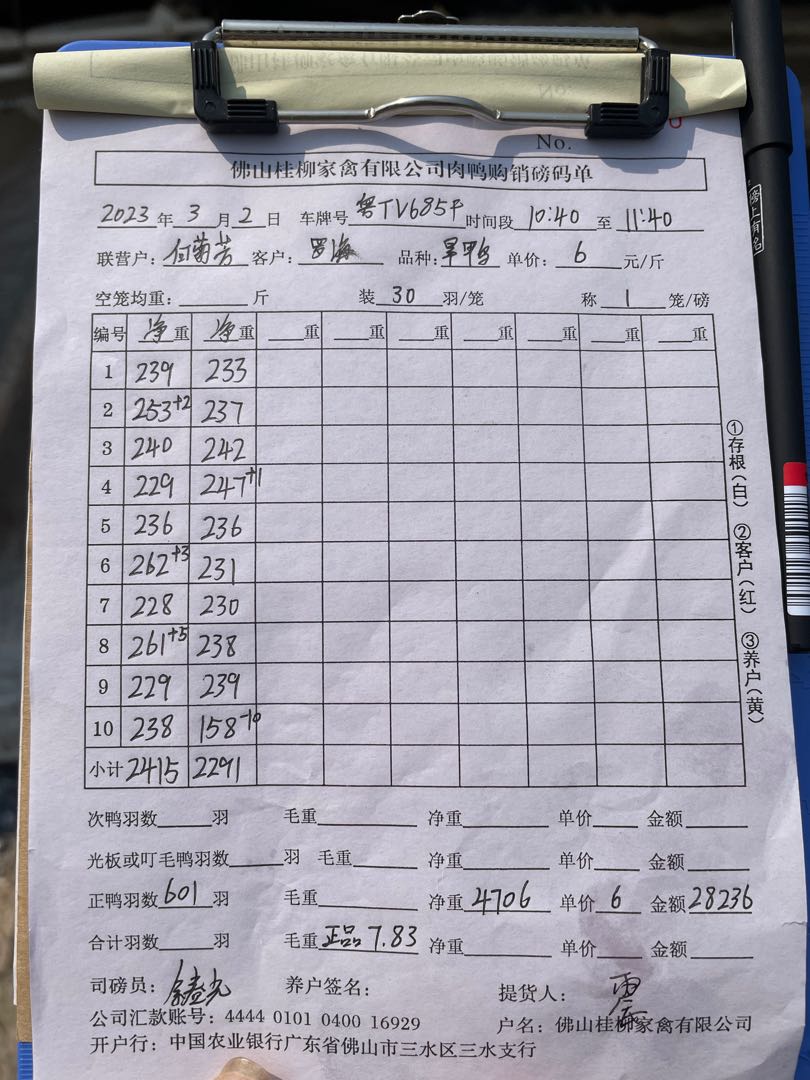 No.
佛山桂柳家禽有限公司肉鸭购销磅码单
2023年3月2日 车牌号粤TV685F 时间段10:40至11:40
联营户: 何菊芳 客户: 罗海 品种: 旱鸭 单价: 6 元/斤
空笼均重: 斤 装30羽/笼 称1笼/磅
编号 净重 净重 重 重 重 重 重 重 重
1 239 233
2 253+2 237
3 240 242
4 229 247+1
5 236 236
6 262+3 231
7 228 230
8 261+5 238
9 229 239
10 238 158-10
小计 2415 2291
①存根(白) ②客户(红) ③养户(黄)
次鸭羽数 羽 毛重 净重 单价 金额
光板或叮毛鸭羽数 羽 毛重 净重 单价 金额
正鸭羽数601羽 毛重 净重4706 单价6 金额28236
合计羽数 羽 毛重正品7.83 净重 单价 金额
司磅员: 养户签名: 提货人:
公司汇款账号: 4444 0101 0400 16929 户名: 佛山桂柳家禽有限公司
开户行: 中国农业银行广东省佛山市三水区三水支行
榜上有名